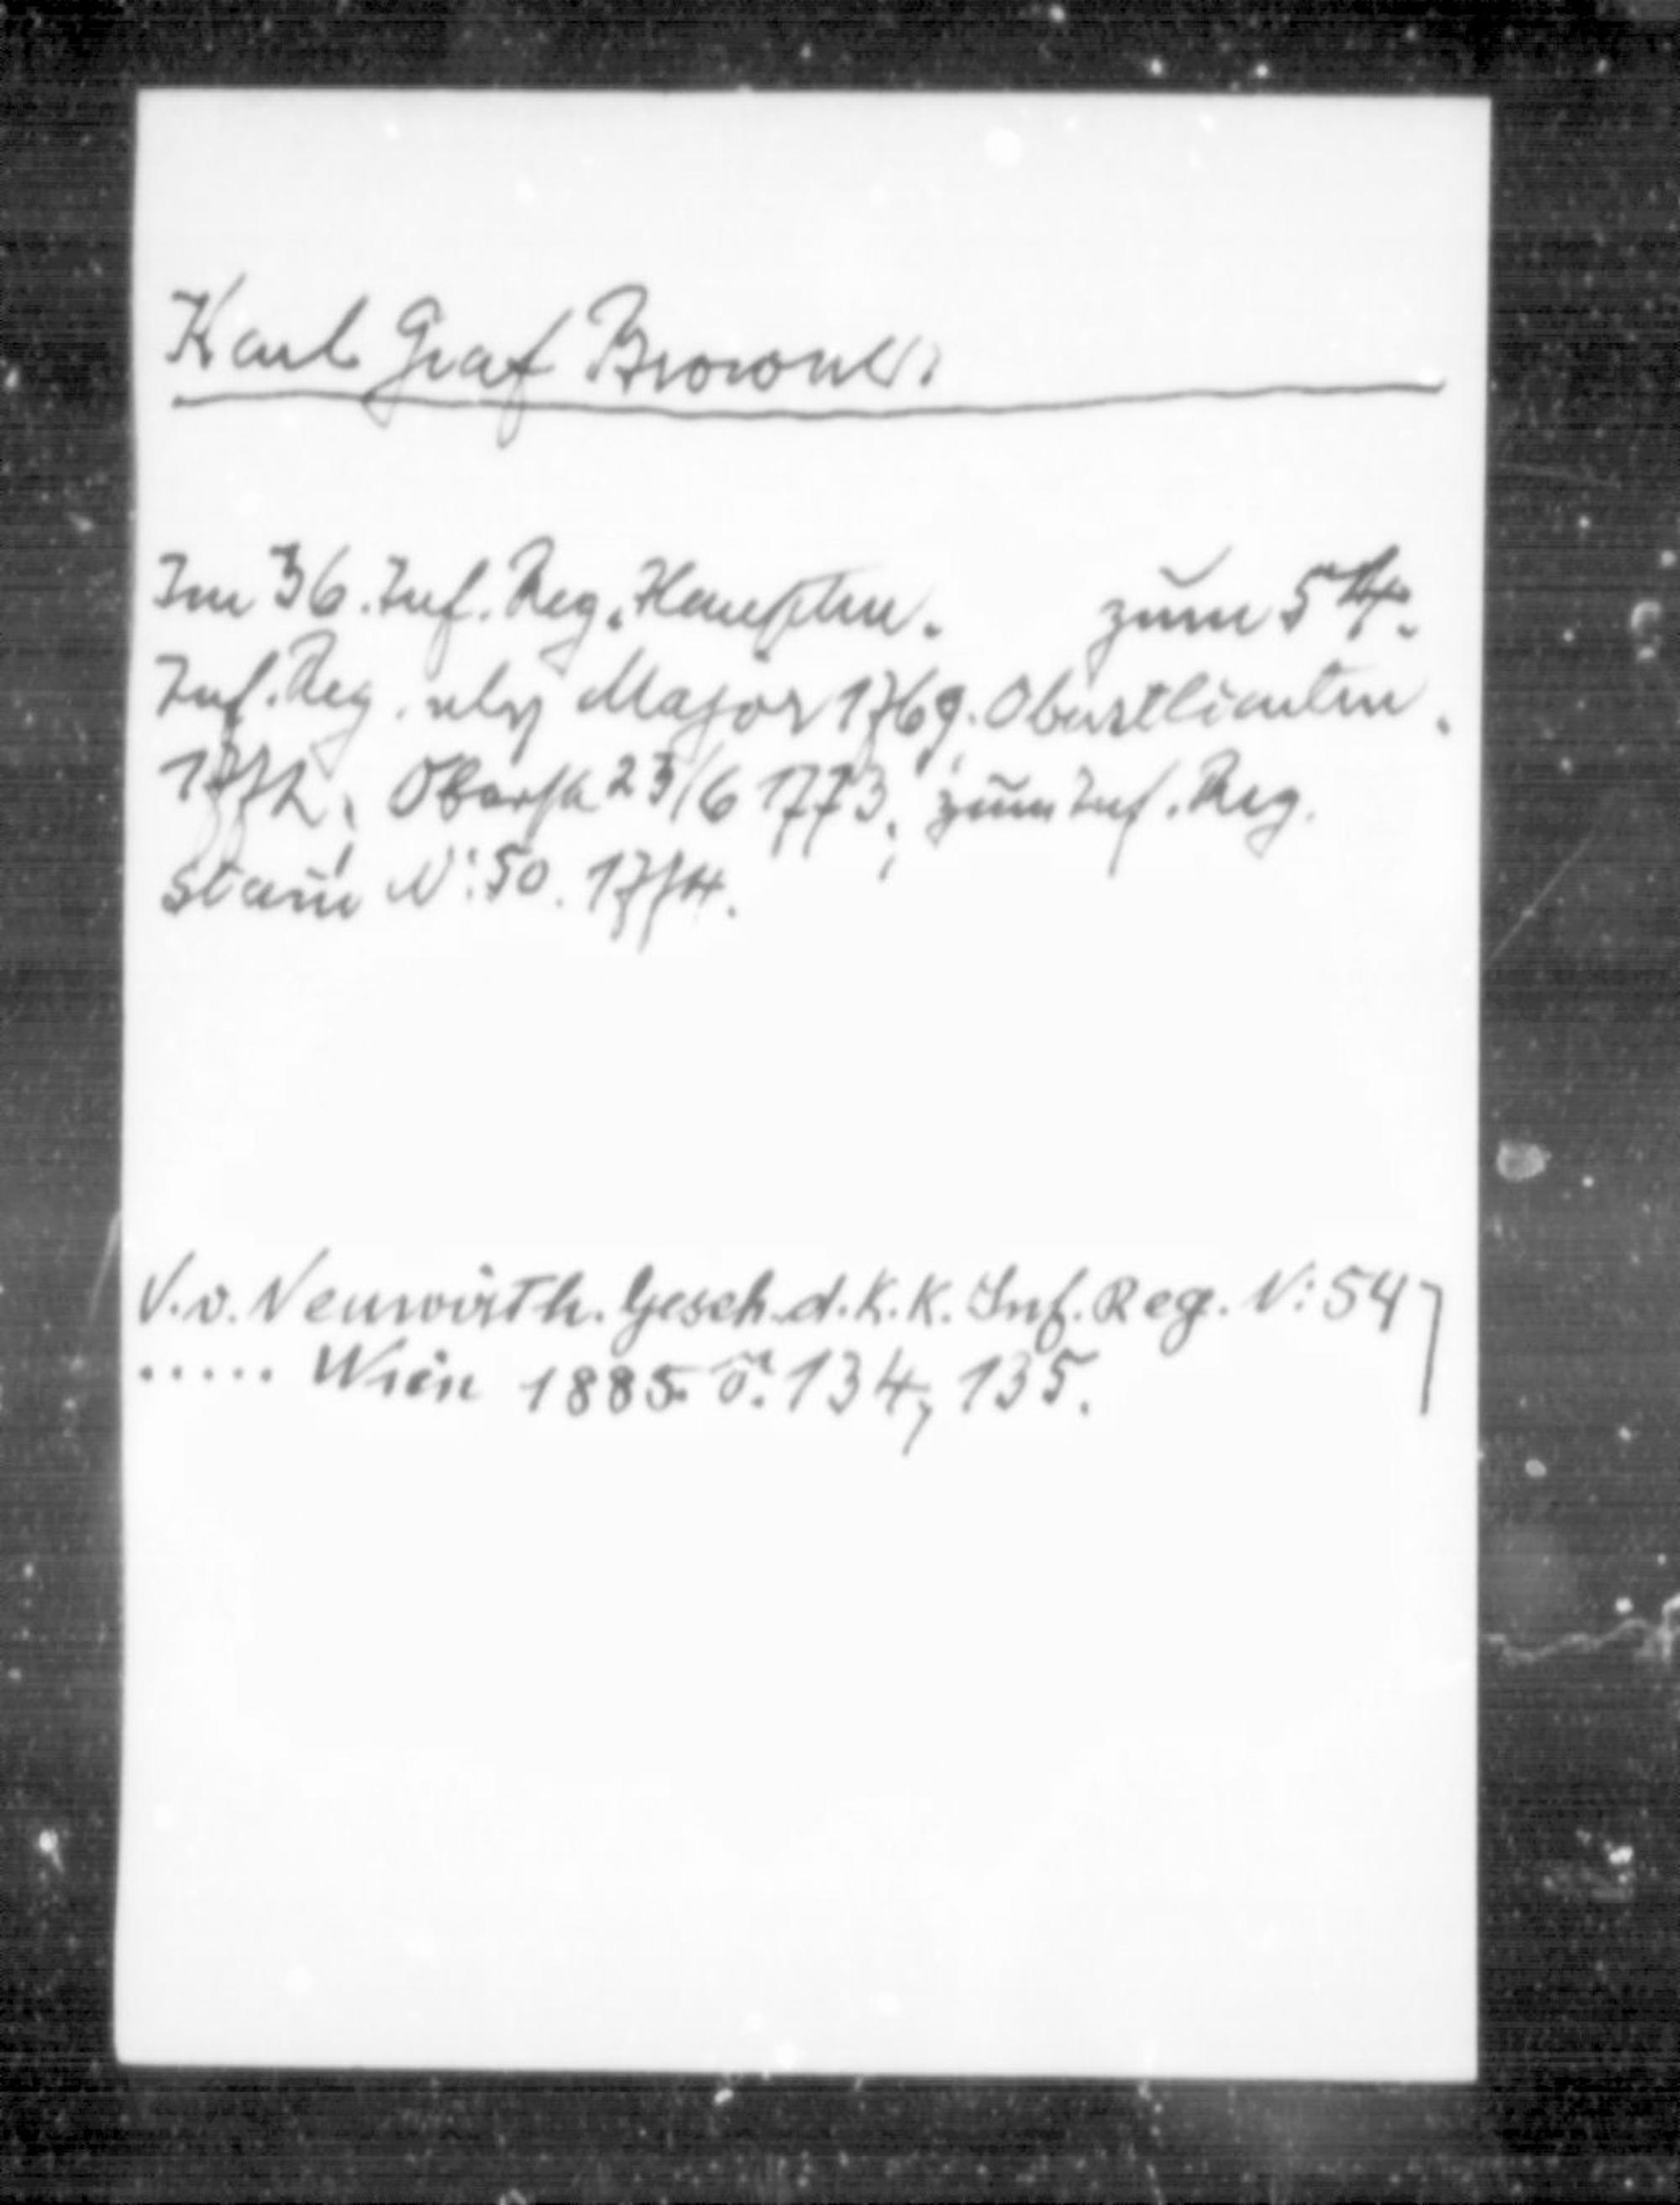 Karl Graf Browne.
Im 36. Inf. Reg. Hauptm. zum 54.
Inf. Reg. als Major 1769. Oberstlieutn.
1772, Oberst 23/6 1773, zum Inf. Reg.
Stain N: 50. 1774.
V. v. Neuwirth. Gesch. d. K. K. Inf. Reg. N: 54
..... Wien 1885. S. 134, 135.